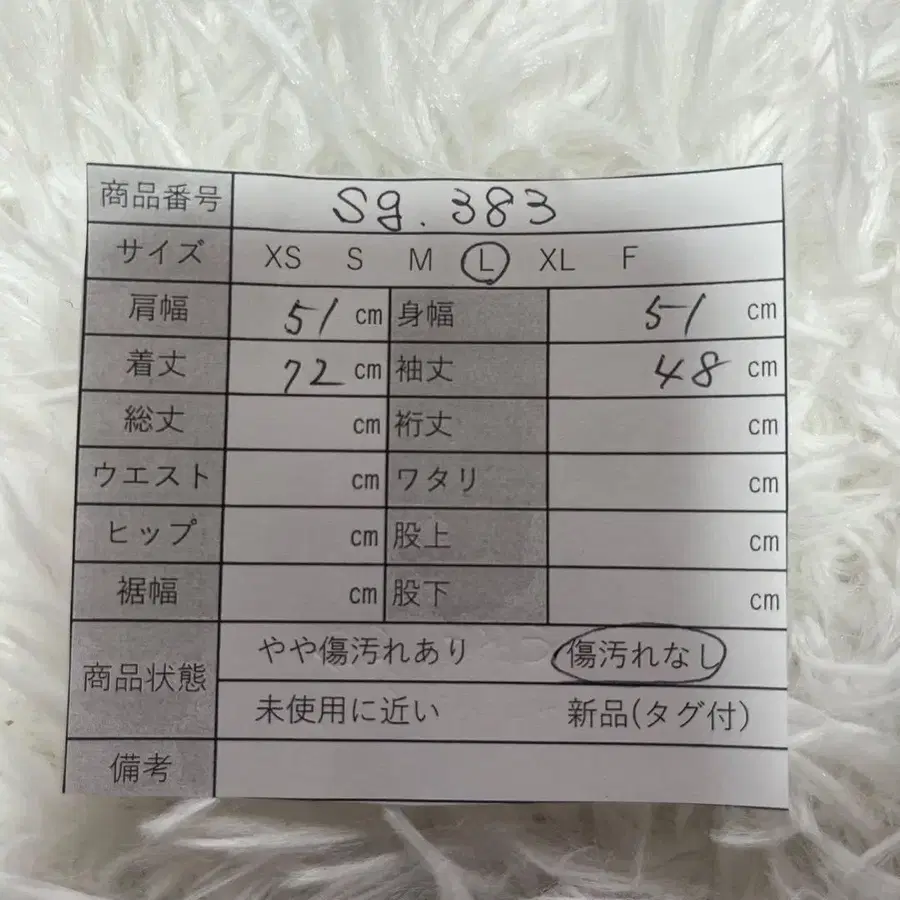 商品番号 Sg. 383
サイズ XS S M L XL F
肩幅 51 cm 身幅 51 cm
着丈 72 cm 袖丈 48 cm
総丈 cm 裄丈 cm
ウエスト cm ワタリ cm
ヒップ cm 股上 cm
裾幅 cm 股下 cm
商品状態 やや傷汚れあり 傷汚れなし
未使用に近い 新品(タグ付)
備考